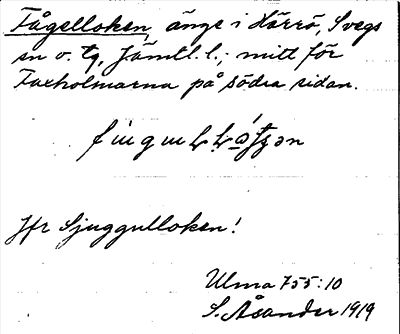 Fågelloken, änge i Härrö, Svegs
sn o. tg, Jämtl. l.; mitt för
Faxholmarna på södra sidan.
Jfr Sjuggulloken!
Ulma 755:10
S. Åsander 1919